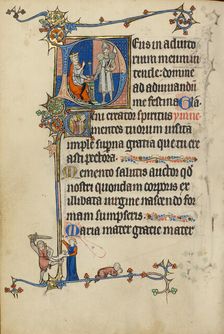 Deus in adiuto
rium meum in
tende: domine
ad adiuvandū
me festina. Gla
Veni creator spiritus ymne
mentes tuorum visita
imple supna gratia que tu cre
asti pectora.
Memento salutis auctor qd
nostri quondam corporis ex
illibata virgine nascendo for
mam sumpseris.
Maria mater gracie mater